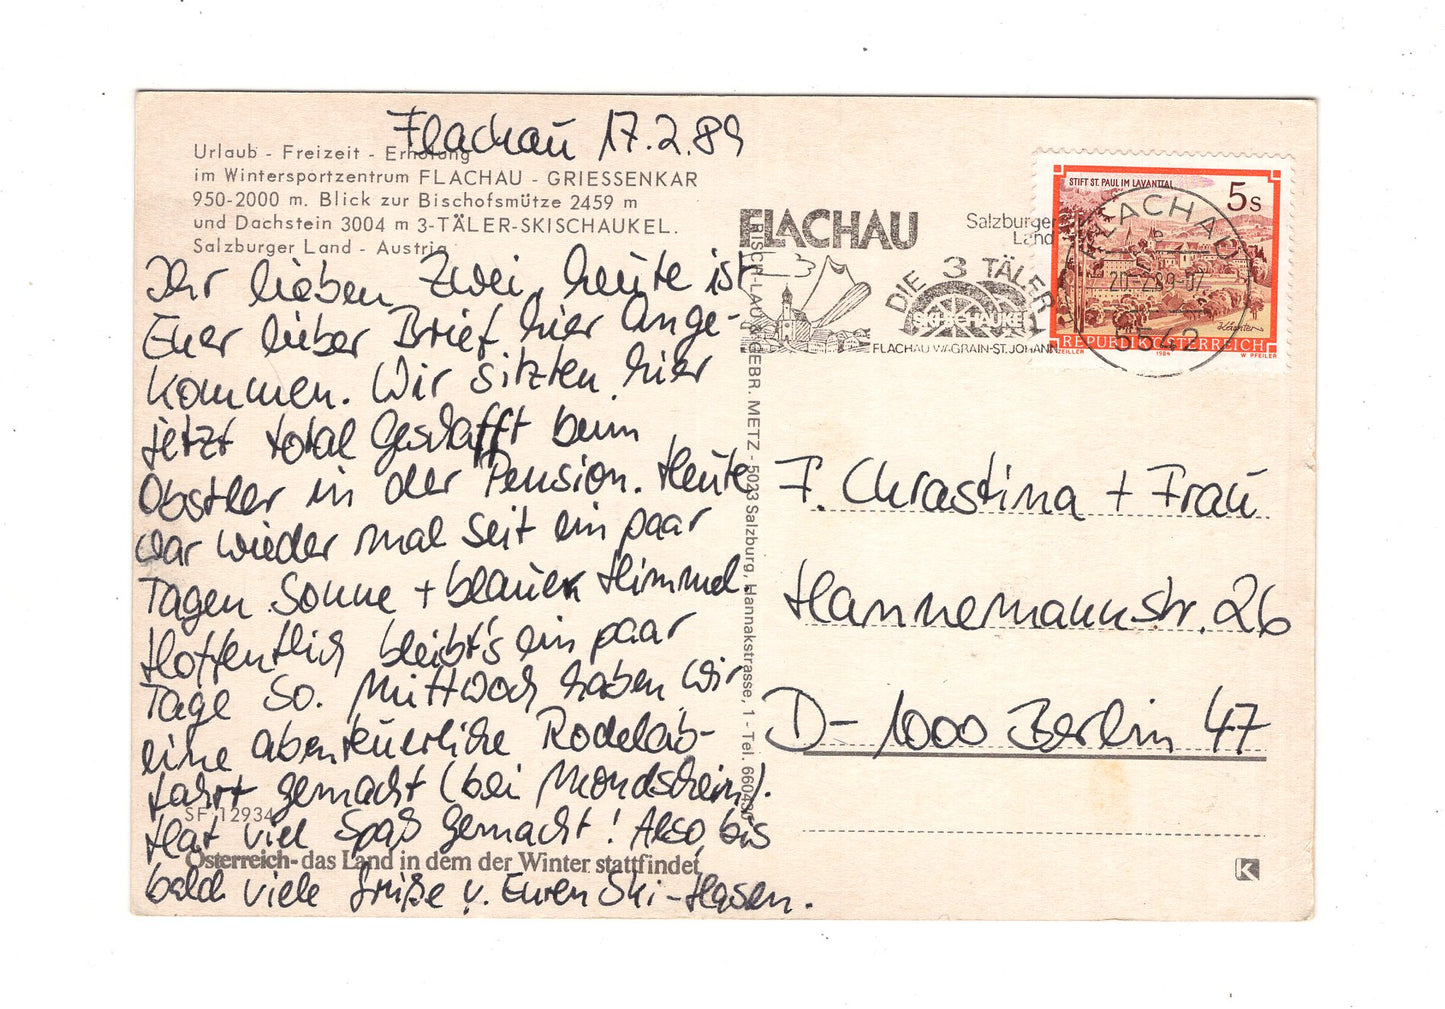 Flachau 17.2.89
Urlaub - Freizeit - Erholung
im Wintersportzentrum FLACHAU - GRIESSENKAR
950-2000 m. Blick zur Bischofsmütze 2459 m
und Dachstein 3004 m 3-TÄLER-SKISCHAUKEL.
Salzburger Land - Austria
Ihr lieben Zwei, heute ist
Euer lieber Brief hier ange-
kommen. Wir sitzen hier
jetzt total geschafft beim
Obstler in der Pension. Heute
war wieder mal seit ein paar
Tagen Sonne + blauer Himmel
Hoffentlich bleibt's ein paar
Tage so. Mittwoch haben wir
eine abenteuerliche Rodelab-
fahrt gemacht (bei Mondschein).
Hat viel Spaß gemacht! Also, bis
bald viele Grüße v. Euren Ski-Hasen.
SF 12934
Österreich-das Land in dem der Winter stattfindet
GEBR. METZ - 5023 Salzburg, Hannakstrasse, 1 - Tel. 660430
FLACHAU
Salzburger
Land
DIE 3 TÄLER
SKISCHAUKEL
FLACHAU-WAGRAIN-ST.JOHANN
FLACHAU
20-2.89-07
5542
STIFT ST. PAUL IM LAVANTTAL
5s
Kärnten
REPUBLIK ÖSTERREICH
ZEILLER 1984 W. PFEILER
F. Chrastina + Frau
Hannemannstr. 26
D-1000 Berlin 47
K